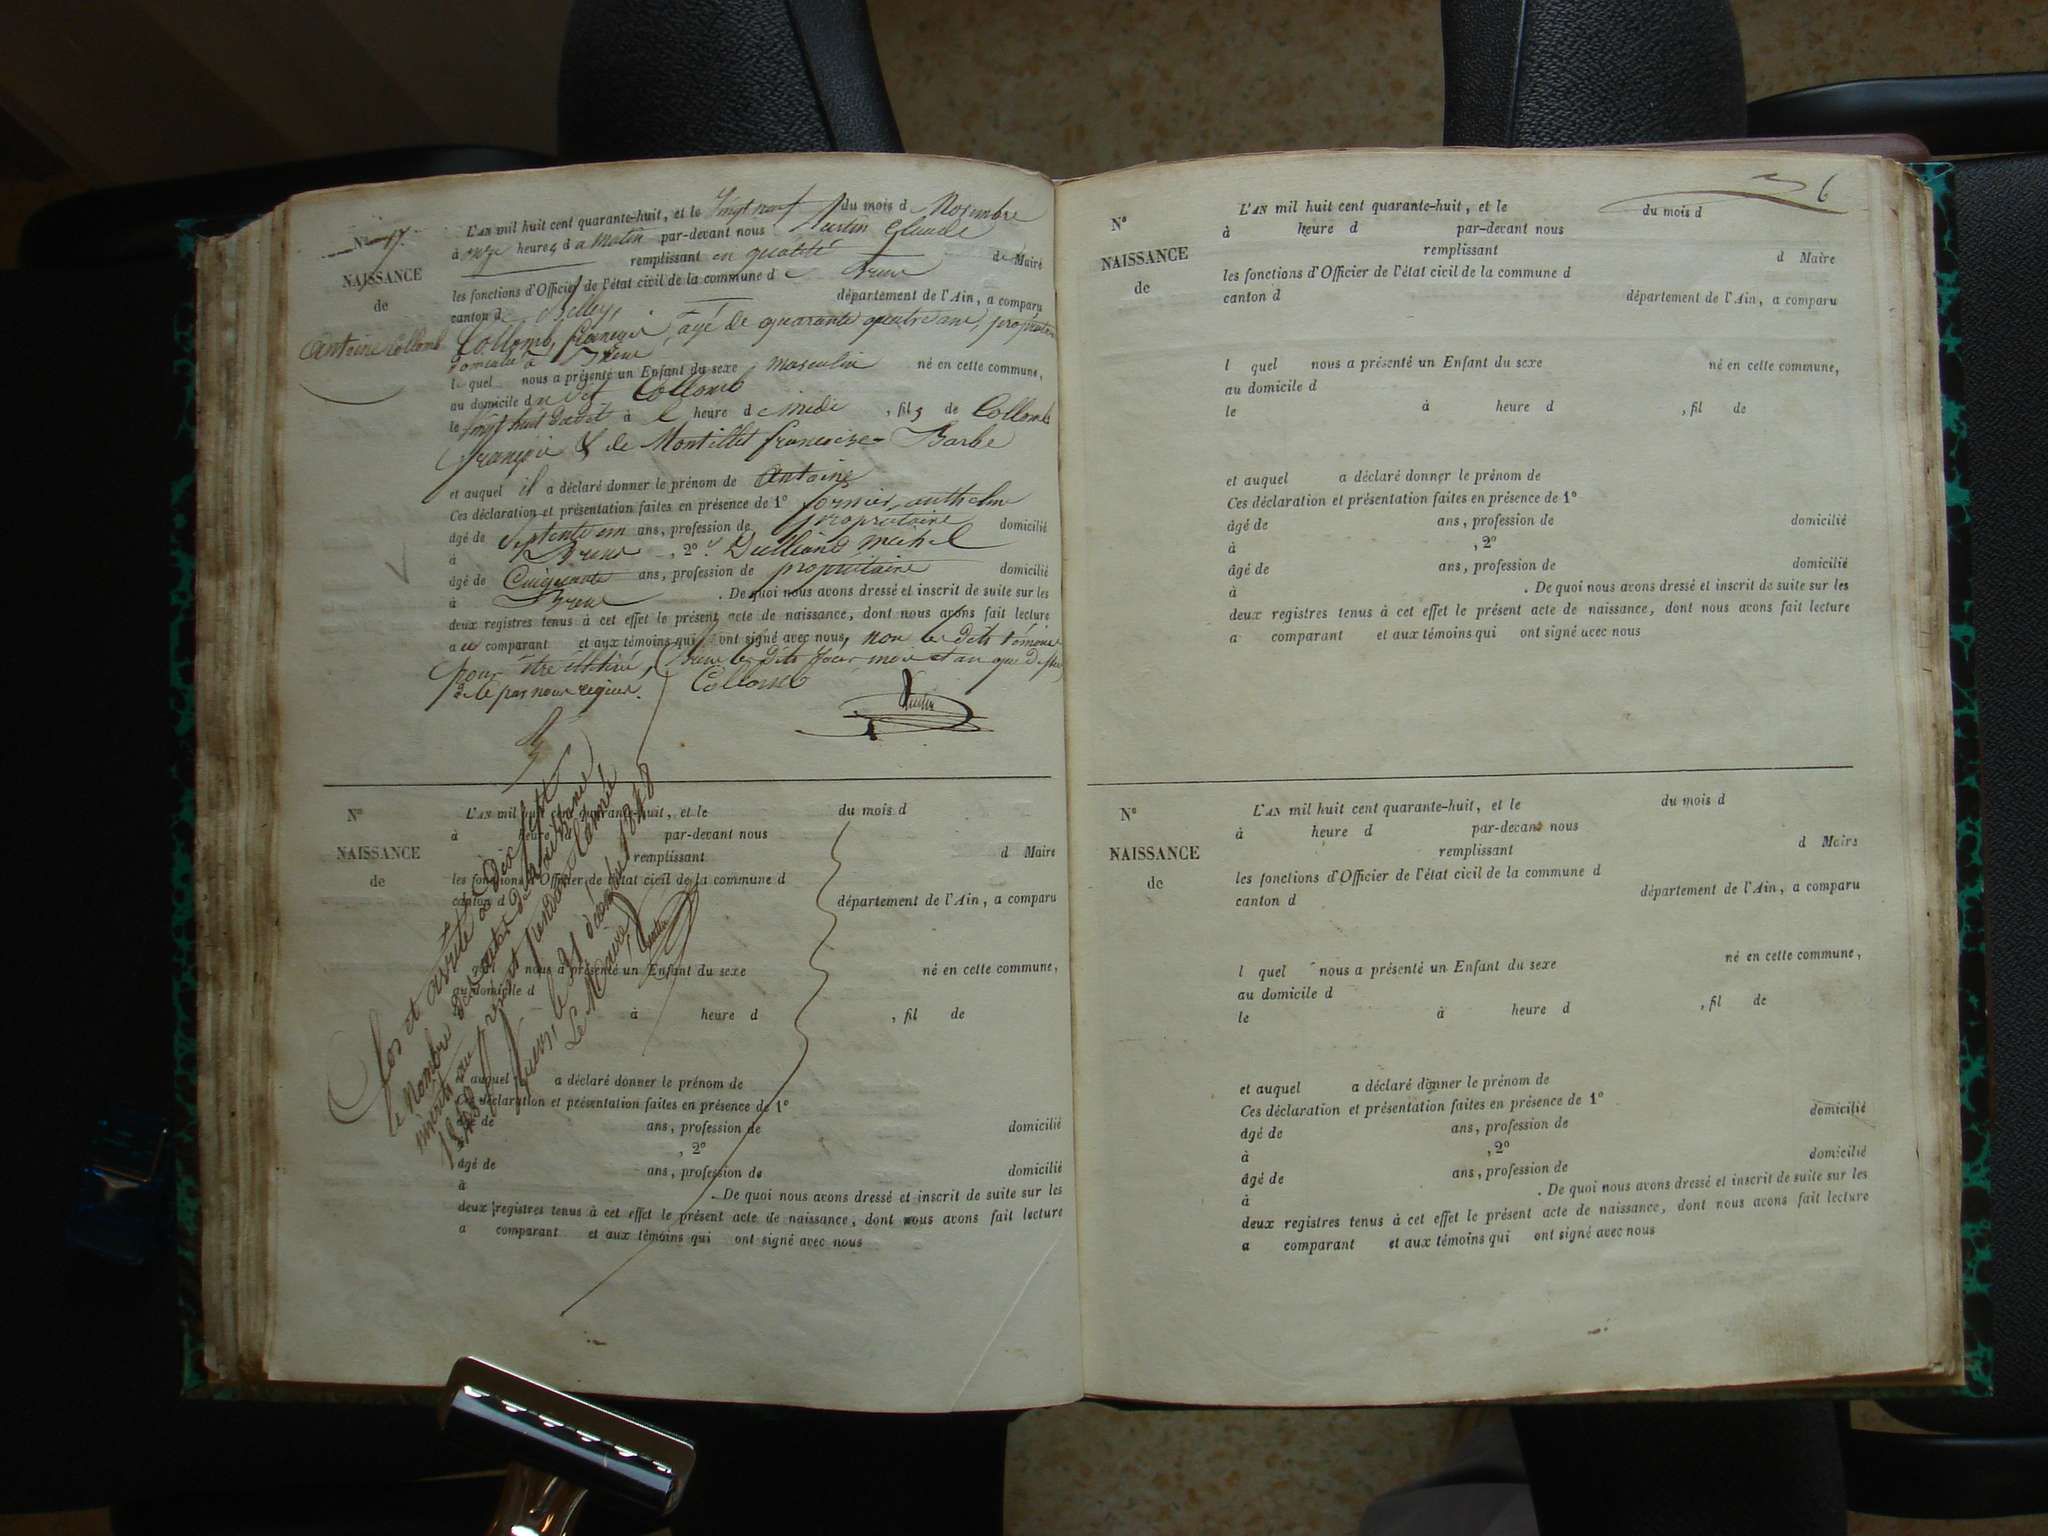 N° 17
NAISSANCE
de
Antoine Collomb
L'AN mil huit cent quarante-huit, et le Vingt neuf du mois d Novembre
à onze heures du Matin par-devant nous Martin Claude
remplissant en qualité de Maire
les fonctions d'Officier de l'état civil de la commune de Brens
canton de Belley, département de l'Ain, a comparu
Collomb françois, agé de quarante quatre ans, propriétaire
domicilié à Brens
lequel nous a présenté un Enfant du sexe masculin né en cette commune,
au domicile du dit Collomb
le vingt huit à heure de midi, fils de Collomb
françois & de Montillet françoise Barbe
et auquel il a déclaré donner le prénom de Antoine
Ces déclaration et présentation faites en présence de 1° fornier anthelme
âgé de Septente un ans, profession de propriétaire domicilié
à Brens, 2° Dulliand michel
âgé de Cinquante ans, profession de propriétaire domicilié
à Brens. De quoi nous avons dressé et inscrit de suite sur les
deux registres tenus à cet effet le présent acte de naissance, dont nous avons fait lecture
au comparant et aux témoins qui ont signé avec nous, non les dits témoins
pour être illitéré, Brens les dits jour mois et an que dessus
Collomb
Martin
N°
NAISSANCE
de
L'AN mil huit cent quarante-huit, et le du mois d
à heure d par-devant nous
remplissant d Maire
les fonctions d'Officier de l'état civil de la commune d
canton d département de l'Ain, a comparu
l quel nous a présenté un Enfant du sexe né en cette commune,
au domicile d
le à heure d , fil de
et auquel a déclaré donner le prénom de
Ces déclaration et présentation faites en présence de 1°
âgé de ans, profession de domicilié
à , 2°
âgé de ans, profession de domicilié
à . De quoi nous avons dressé et inscrit de suite sur les
deux registres tenus à cet effet le présent acte de naissance, dont nous avons fait lecture
a comparant et aux témoins qui ont signé avec nous
Clos et arrêté à dix sept
le Nombre des actes de naissance
inscrits au présent pendant l'année
1848. Brens, le 31 décembre 1848
Le Maire,
Martin
6
N°
NAISSANCE
de
L'AN mil huit cent quarante-huit, et le du mois d
à heure d par-devant nous
remplissant d Maire
les fonctions d'Officier de l'état civil de la commune d
canton d département de l'Ain, a comparu
l quel nous a présenté un Enfant du sexe né en cette commune,
au domicile d
le à heure d , fil de
et auquel a déclaré donner le prénom de
Ces déclaration et présentation faites en présence de 1°
âgé de ans, profession de domicilié
à , 2°
âgé de ans, profession de domicilié
à . De quoi nous avons dressé et inscrit de suite sur les
deux registres tenus à cet effet le présent acte de naissance, dont nous avons fait lecture
a comparant et aux témoins qui ont signé avec nous
N°
NAISSANCE
de
L'AN mil huit cent quarante-huit, et le du mois d
à heure d par-devant nous
remplissant d Maire
les fonctions d'Officier de l'état civil de la commune d
canton d département de l'Ain, a comparu
l quel nous a présenté un Enfant du sexe né en cette commune,
au domicile d
le à heure d , fil de
et auquel a déclaré donner le prénom de
Ces déclaration et présentation faites en présence de 1°
âgé de ans, profession de domicilié
à , 2°
âgé de ans, profession de domicilié
à . De quoi nous avons dressé et inscrit de suite sur les
deux registres tenus à cet effet le présent acte de naissance, dont nous avons fait lecture
a comparant et aux témoins qui ont signé avec nous